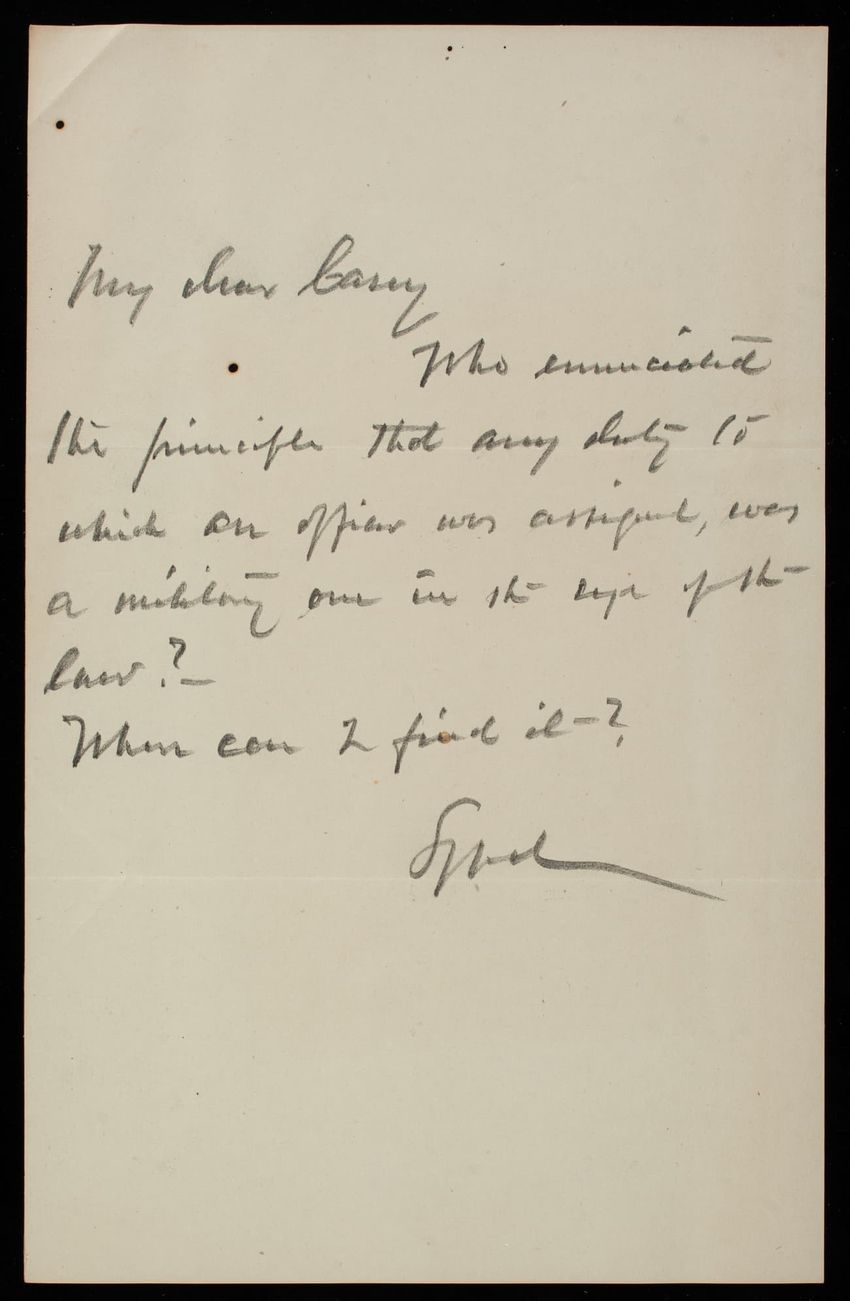 My dear Casey
Who enunciated
the principle that any duty to
which an officer was assigned, was
a military one in the eye of the
law?—
Where can I find it—?